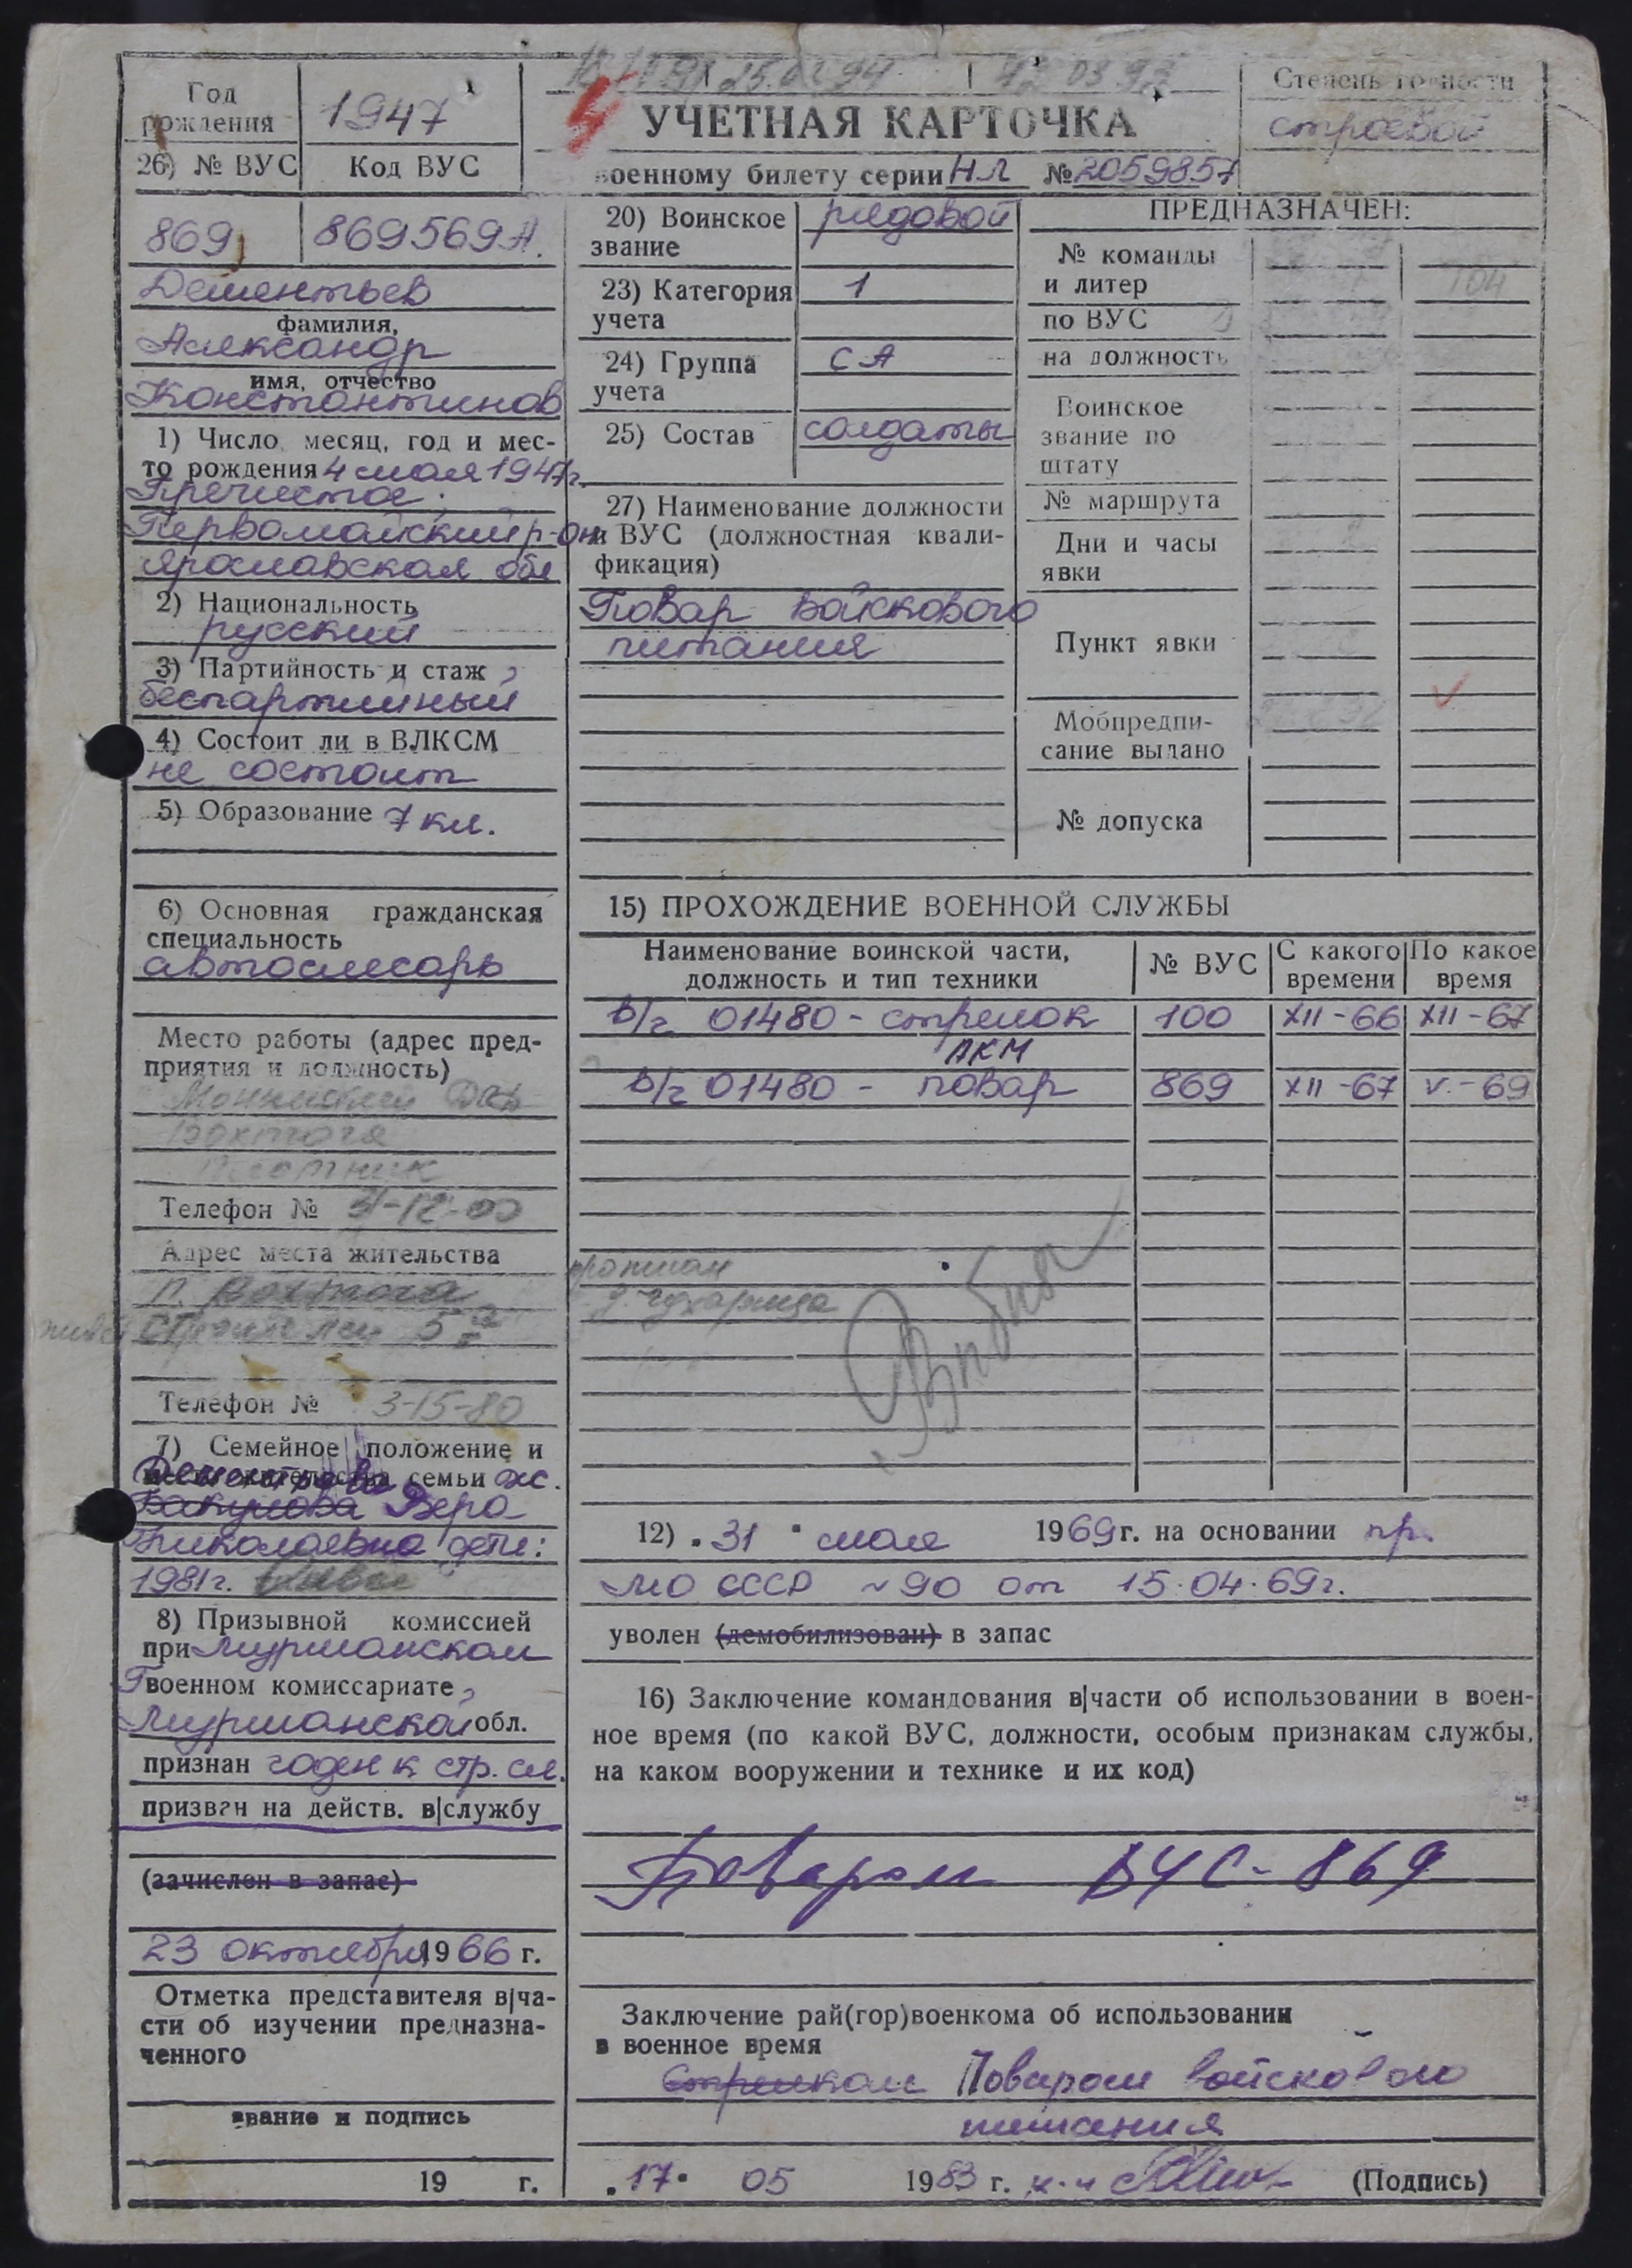 Год
рождения
1947
26) № ВУС
Код ВУС
869
869569А.
Дементьев
фамилия,
Александр
имя, отчество
Константинов
1) Число, месяц, год и мес-
то рождения 4 мая 1947г.
Пречистое
Первомайский р-он
Ярославская обл
2) Национальность
русский
3) Партийность и стаж
беспартийный
4) Состоит ли в ВЛКСМ
не состоит
5) Образование 7 кл.
6) Основная гражданская
специальность
автослесарь
Место работы (адрес пред-
приятия и должность)
Вохтога
Плотник
Телефон № 31-12-00
Адрес места жительства
п. Вохтога
Строителей 5
Телефон № 3-15-80
7) Семейное положение и
семьи ж.
Дементьева
Бакунова Вера
Николаевна дети:
1981г.
8) Призывной комиссией
при Мурманском
Гвоенном комиссариате
Мурманской обл.
признан годен к стр. сл.
призван на действ. в|службу
(зачислен в запас)
23 октября 1966 г.
Отметка представителя в|ча-
сти об изучении предназна-
ченного
звание и подпись
19 г.
15.02.94
12 03 92
УЧЕТНАЯ КАРТОЧКА
военному билету серии НЛ №2059857
Степень годности
строевой
20) Воинское
звание
рядовой
23) Категория
учета
1
24) Группа
учета
СА
25) Состав
солдаты
27) Наименование должности
и ВУС (должностная квали-
фикация)
Повар войскового
питания
ПРЕДНАЗНАЧЕН:
№ команды
и литер
104
по ВУС
на должность
Воинское
звание по
штату
№ маршрута
Дни и часы
явки
Пункт явки
Мобпредпи-
сание выдано
№ допуска
15) ПРОХОЖДЕНИЕ ВОЕННОЙ СЛУЖБЫ
Наименование воинской части,
должность и тип техники
№ ВУС
С какого
времени
По какое
время
В/ч 01480 - стрелок 100 XII-66 XII-67
АКМ
В/ч 01480 - повар 869 XII-67 V-69
д. Чухарица
12) "31" мая 1969г. на основании пр.
МО СССР N 90 от 15.04.69г.
уволен (демобилизован) в запас
16) Заключение командования в|части об использовании в воен-
ное время (по какой ВУС, должности, особым признакам службы,
на каком вооружении и технике и их код)
Поваром ВУС-869
Заключение рай(гор)военкома об использовании
в военное время
Стрелком Поваром войскового
питания
"17" 05 1983 г. (Подпись)